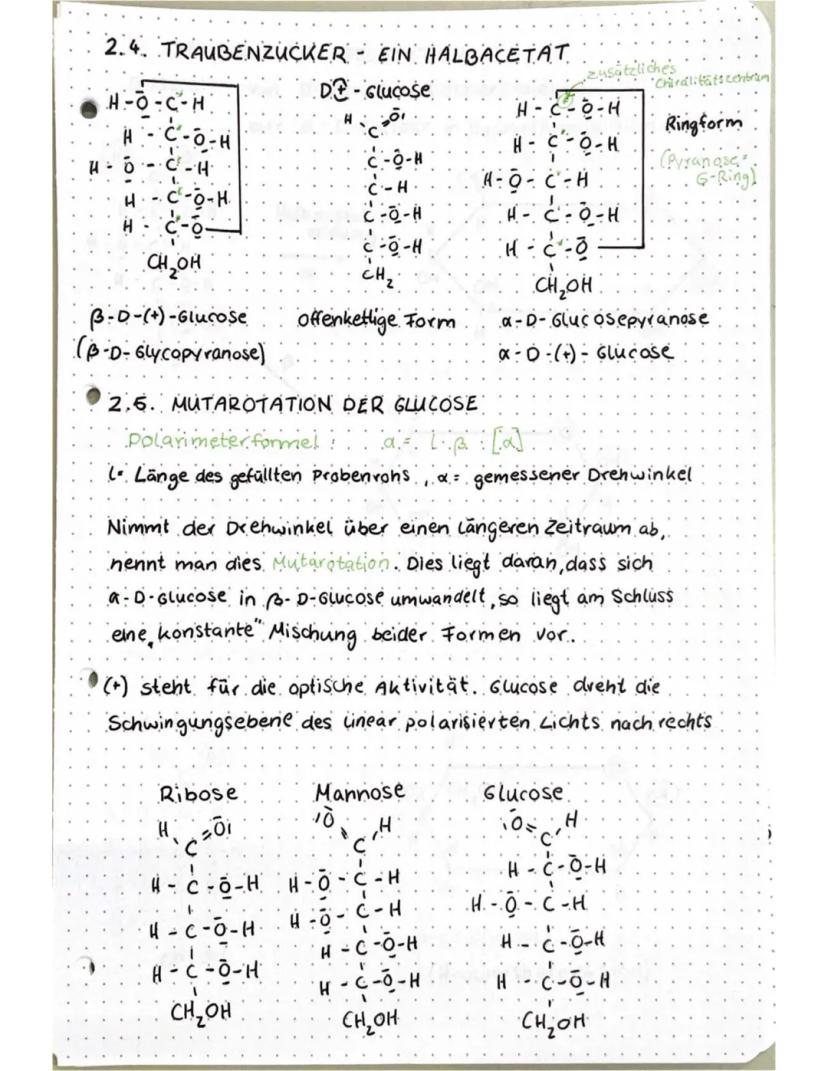 2.4. TRAUBENZUCKER - EIN HALBACETAT
zusätzliches
Chiralitätszentrum
D(+)-Glucose
H-O-C-H
H-C-O-H
H-O-C-H
H-C-O-H
H-C-O
CH2OH
H O
C
C-O-H
C-H
C-O-H
C-O-H
CH2
H-C-O-H
H-C-O-H
H-O-C-H
H-C-O-H
H-C-O
CH2OH
Ringform
(Pyranose =
6-Ring)
β-D-(+)-Glucose
(β-D-Glycopyranose)
offenkettige Form
α-D-Glucosepyranose
α-D-(+)-Glucose
2.5. MUTAROTATION DER GLUCOSE
Polarimeterformel: α = l · β · [α]
l = Länge des gefüllten Probenrohs, α = gemessener Drehwinkel
Nimmt der Drehwinkel über einen längeren Zeitraum ab,
nennt man dies Mutarotation. Dies liegt daran, dass sich
α-D-Glucose in β-D-Glucose umwandelt, so liegt am Schluss
eine „konstante" Mischung beider Formen vor.
(+) steht für die optische Aktivität. Glucose dreht die
Schwingungsebene des linear polarisierten Lichts nach rechts
Ribose
H O
C
H-C-O-H
H-C-O-H
H-C-O-H
CH2OH
Mannose
O H
C
H-O-C-H
H-O-C-H
H-C-O-H
H-C-O-H
CH2OH
Glucose
O=C H
H-C-O-H
H-O-C-H
H-C-O-H
H-C-O-H
CH2OH